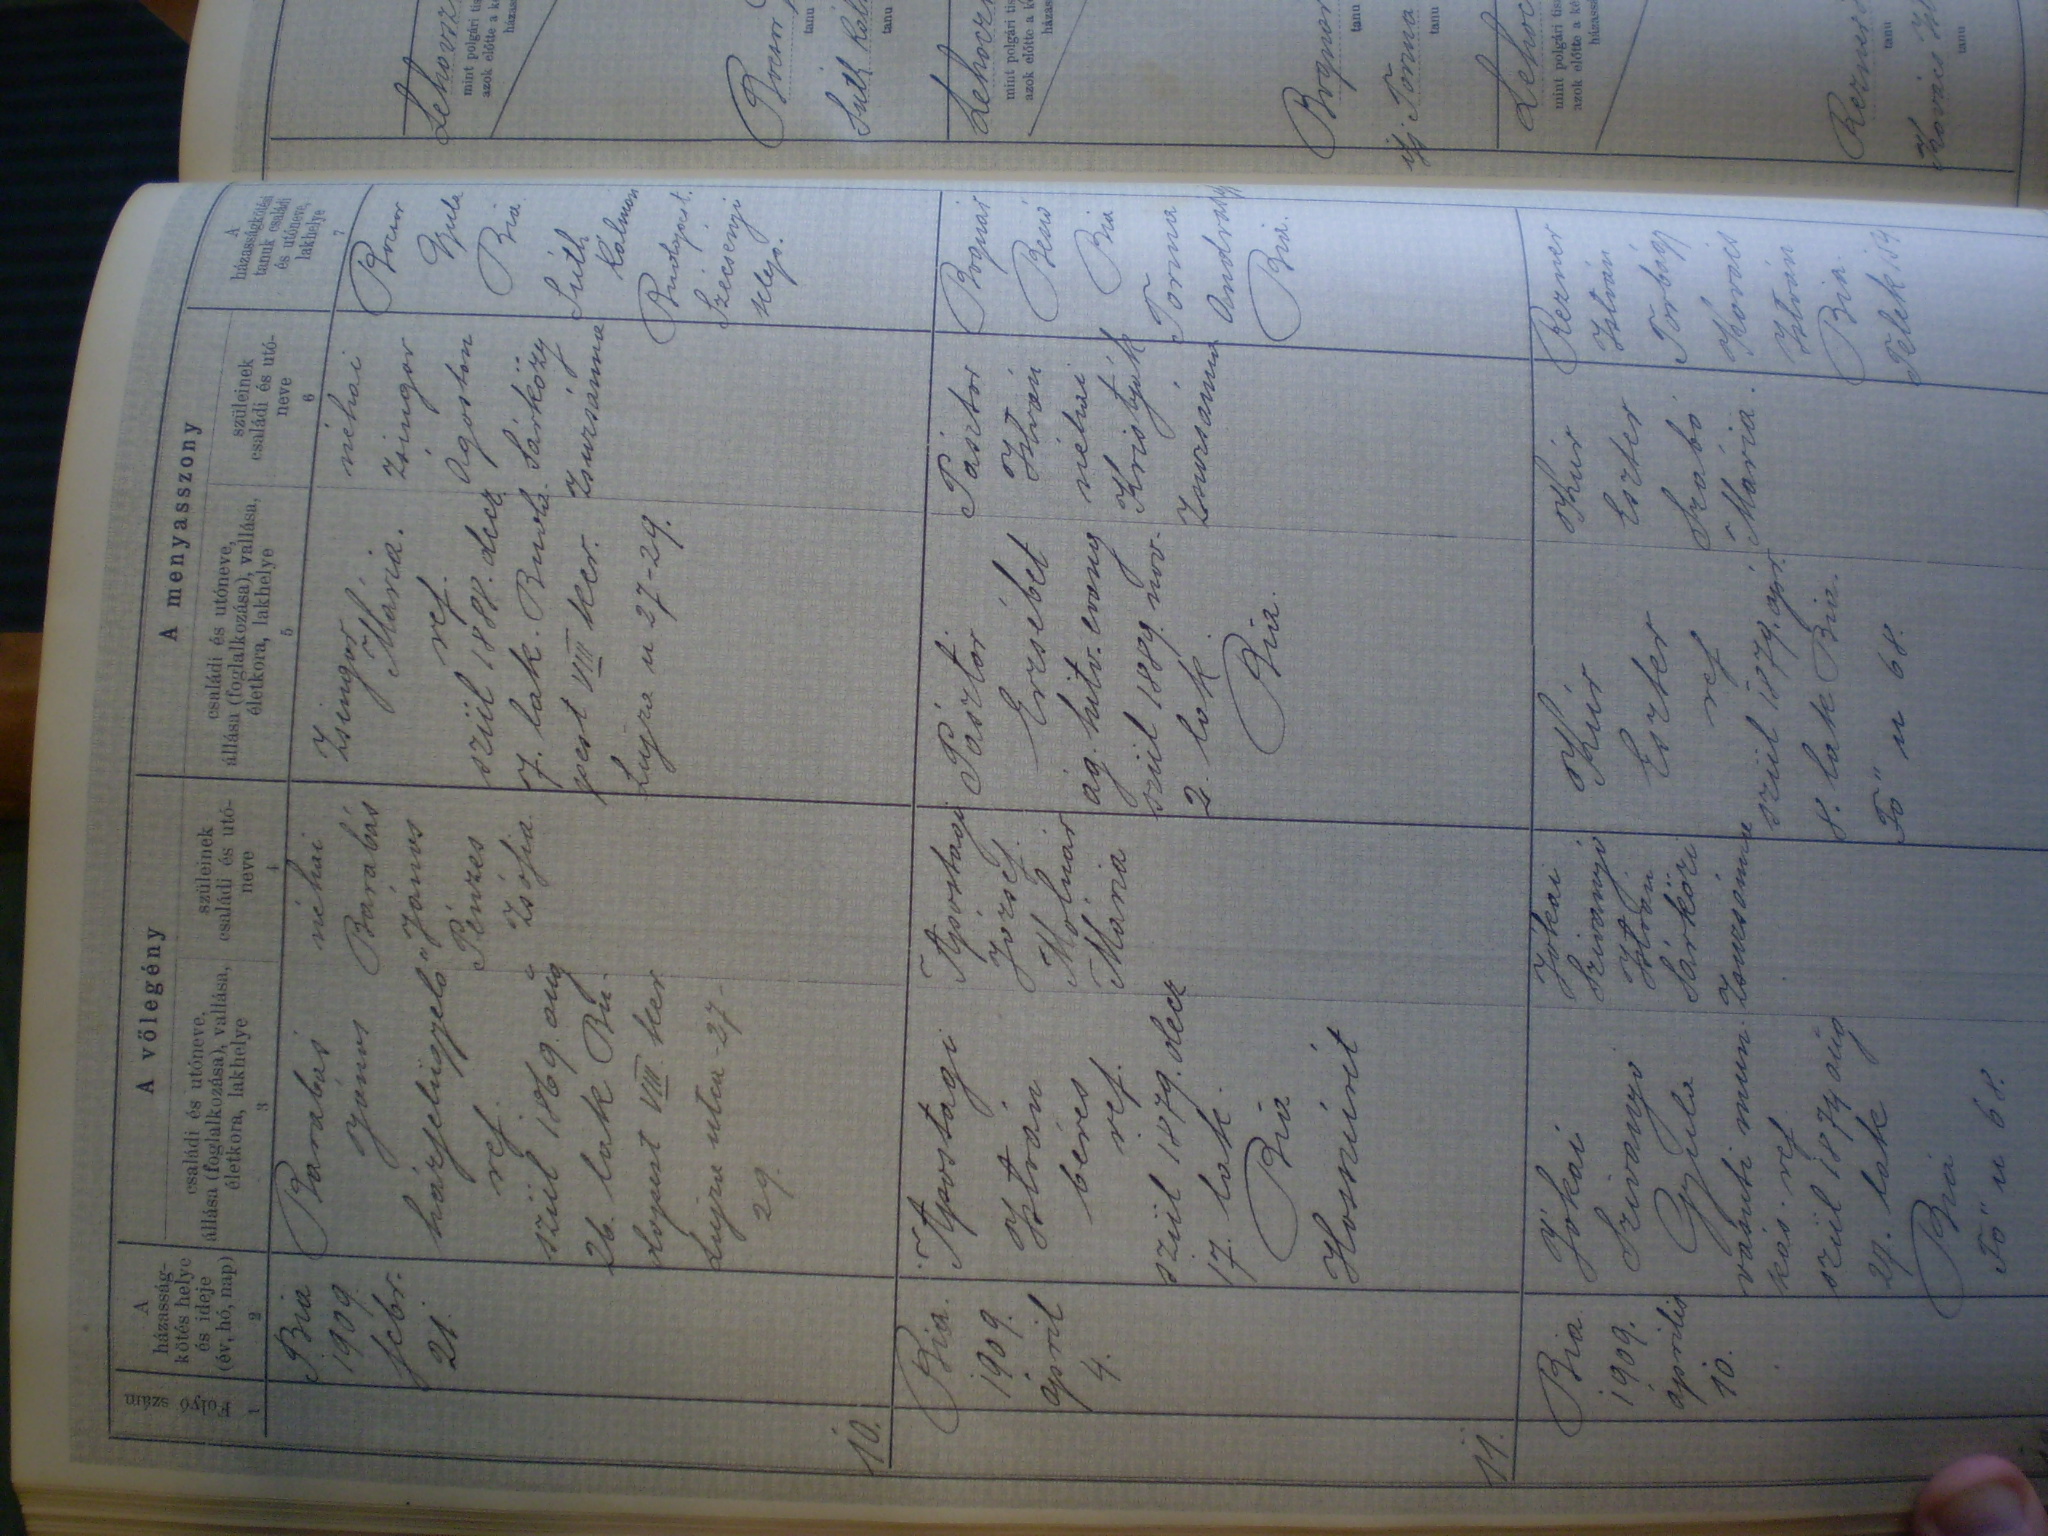 Folyó szám
1
A házasság-
kötés helye
és ideje
(év, hó, nap)
2
A vőlegény
családi és utóneve,
állása (foglalkozása), vallása,
életkora, lakhelye
3
szüleinek
családi és utó-
neve
4
A menyasszony
családi és utóneve,
állása (foglalkozása), vallása,
életkora, lakhelye
5
szüleinek
családi és utó-
neve
6
A
házasságkötési
tanuk családi
és utóneve,
lakhelye
7
Bia
1909
febr.
21.
Barabás
János
házfelügyelő
ref.
szül 1869. aug
26. lak Bu-
dapest VIII. ker
Lujza utca 27-
29.
néhai
Barabás
János
Pénzes
Zsófia
Zsingor
Mária.
ref.
szül 1888. decz
7. lak. Buda-
pest VIII ker.
Lujza u 27-29.
néhai
Zsingor
Ágoston
Sárközy
Zsuzsánna
Gyula
Bia
Süth
Kálmán
Budapest.
10.
Bia.
1909.
április
4.
Apostagi
István
béres
ref.
szül 1879. decz
17. lak.
Bia
Hosszúrét
Apostagi
József.
Molnár
Mária
Pásztor
Erzsébet
ág. hitv. evang
szül 1889. nov.
2. lak
Bia.
Pásztor
István
néhai
Zsuzsanna
Bognár
Benő
Bia
Torma
András
Bia.
11.
Bia
1909.
április
10.
Jókai
Szivanyó
Gyula
vasuti mun-
kás. ref
szül 1879 aug
29. lak
Bia
Fő u 68.
Jókai
Szivanyó
István
Sárközi
Zsuzsánna
Kúr
Eszter
ref
szül 1879. apr.
8. lak Bia.
Fő u 68.
Kúr
Eszter
Szabó
Mária.
Rezner
István
Torbágy
Kovács
István
Bia.
mint polgári tis
azok előtte a ké
házass
tanu
Süth Kálm
tanu
mint polgári tis
azok előtte a ké
házass
Bognár
tanu
ifj Torma
tanu
mint polgári tis
azok előtte a ké
házass
Rezner
tanu
Kovács
tanu